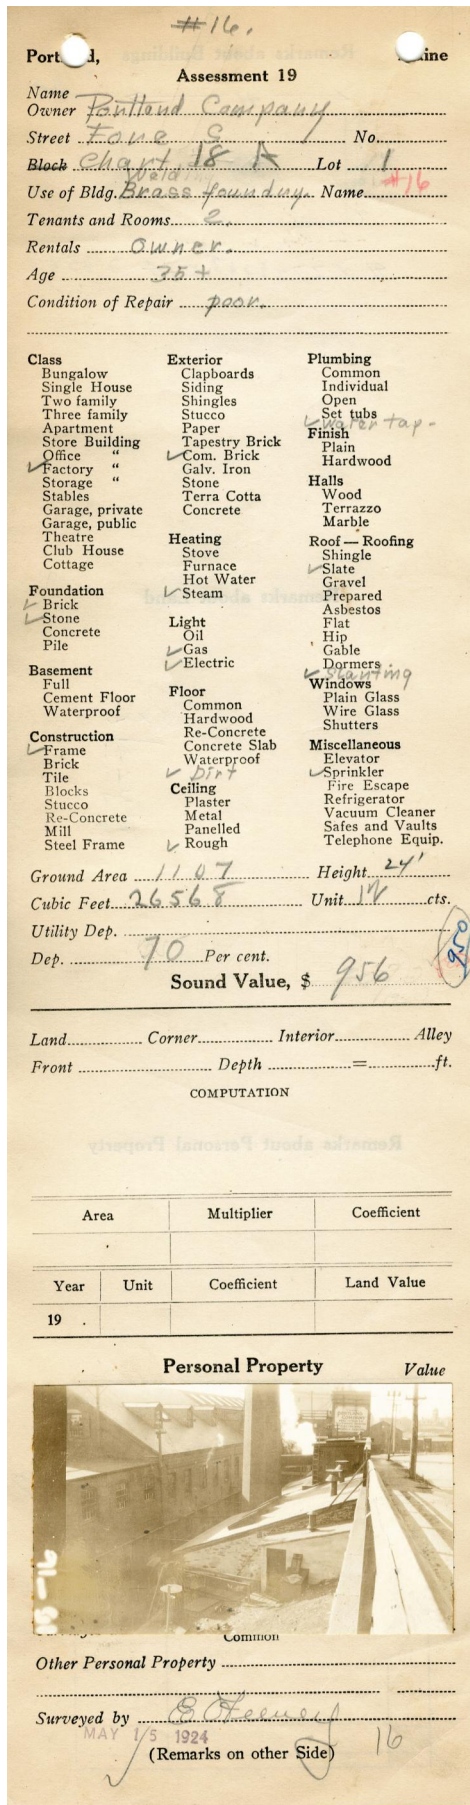 #16.
Portland, Maine
Assessment 19
Name
Owner Portland Company
Street Fore S No.
Block Chart 18 A Lot 1
Welding
Use of Bldg. Brass foundry. Name #16
Tenants and Rooms 2
Rentals Owner.
Age 35+
Condition of Repair poor.
Class
Bungalow
Single House
Two family
Three family
Apartment
Store Building
Office "
✓ Factory "
Storage "
Stables
Garage, private
Garage, public
Theatre
Club House
Cottage
Foundation
✓ Brick
✓ Stone
Concrete
Pile
Basement
Full
Cement Floor
Waterproof
Construction
✓ Frame
Brick
Tile
Blocks
Stucco
Re-Concrete
Mill
Steel Frame
Exterior
Clapboards
Siding
Shingles
Stucco
Paper
Tapestry Brick
✓ Com. Brick
Galv. Iron
Stone
Terra Cotta
Concrete
Heating
Stove
Furnace
Hot Water
✓ Steam
Light
Oil
✓ Gas
✓ Electric
Floor
Common
Hardwood
Re-Concrete
Concrete Slab
Waterproof
✓ Dirt
Ceiling
Plaster
Metal
Panelled
✓ Rough
Plumbing
Common
Individual
Open
Set tubs
✓ Water tap-
Finish
Plain
Hardwood
Halls
Wood
Terrazzo
Marble
Roof — Roofing
Shingle
✓ Slate
Gravel
Prepared
Asbestos
Flat
Hip
Gable
Dormers
✓ Slanting
Windows
Plain Glass
Wire Glass
Shutters
Miscellaneous
Elevator
✓ Sprinkler
Fire Escape
Refrigerator
Vacuum Cleaner
Safes and Vaults
Telephone Equip.
Ground Area 1107 Height 24'
Cubic Feet 26568 Unit 12 cts.
Utility Dep.
Dep. 70 Per cent.
950
Sound Value, $ 956
Land Corner Interior Alley
Front Depth = ft.
COMPUTATION
Area Multiplier Coefficient
Year Unit Coefficient Land Value
19 .
Personal Property Value
18-16
Common
Other Personal Property
Surveyed by
MAY 15 1924
(Remarks on other Side) 16